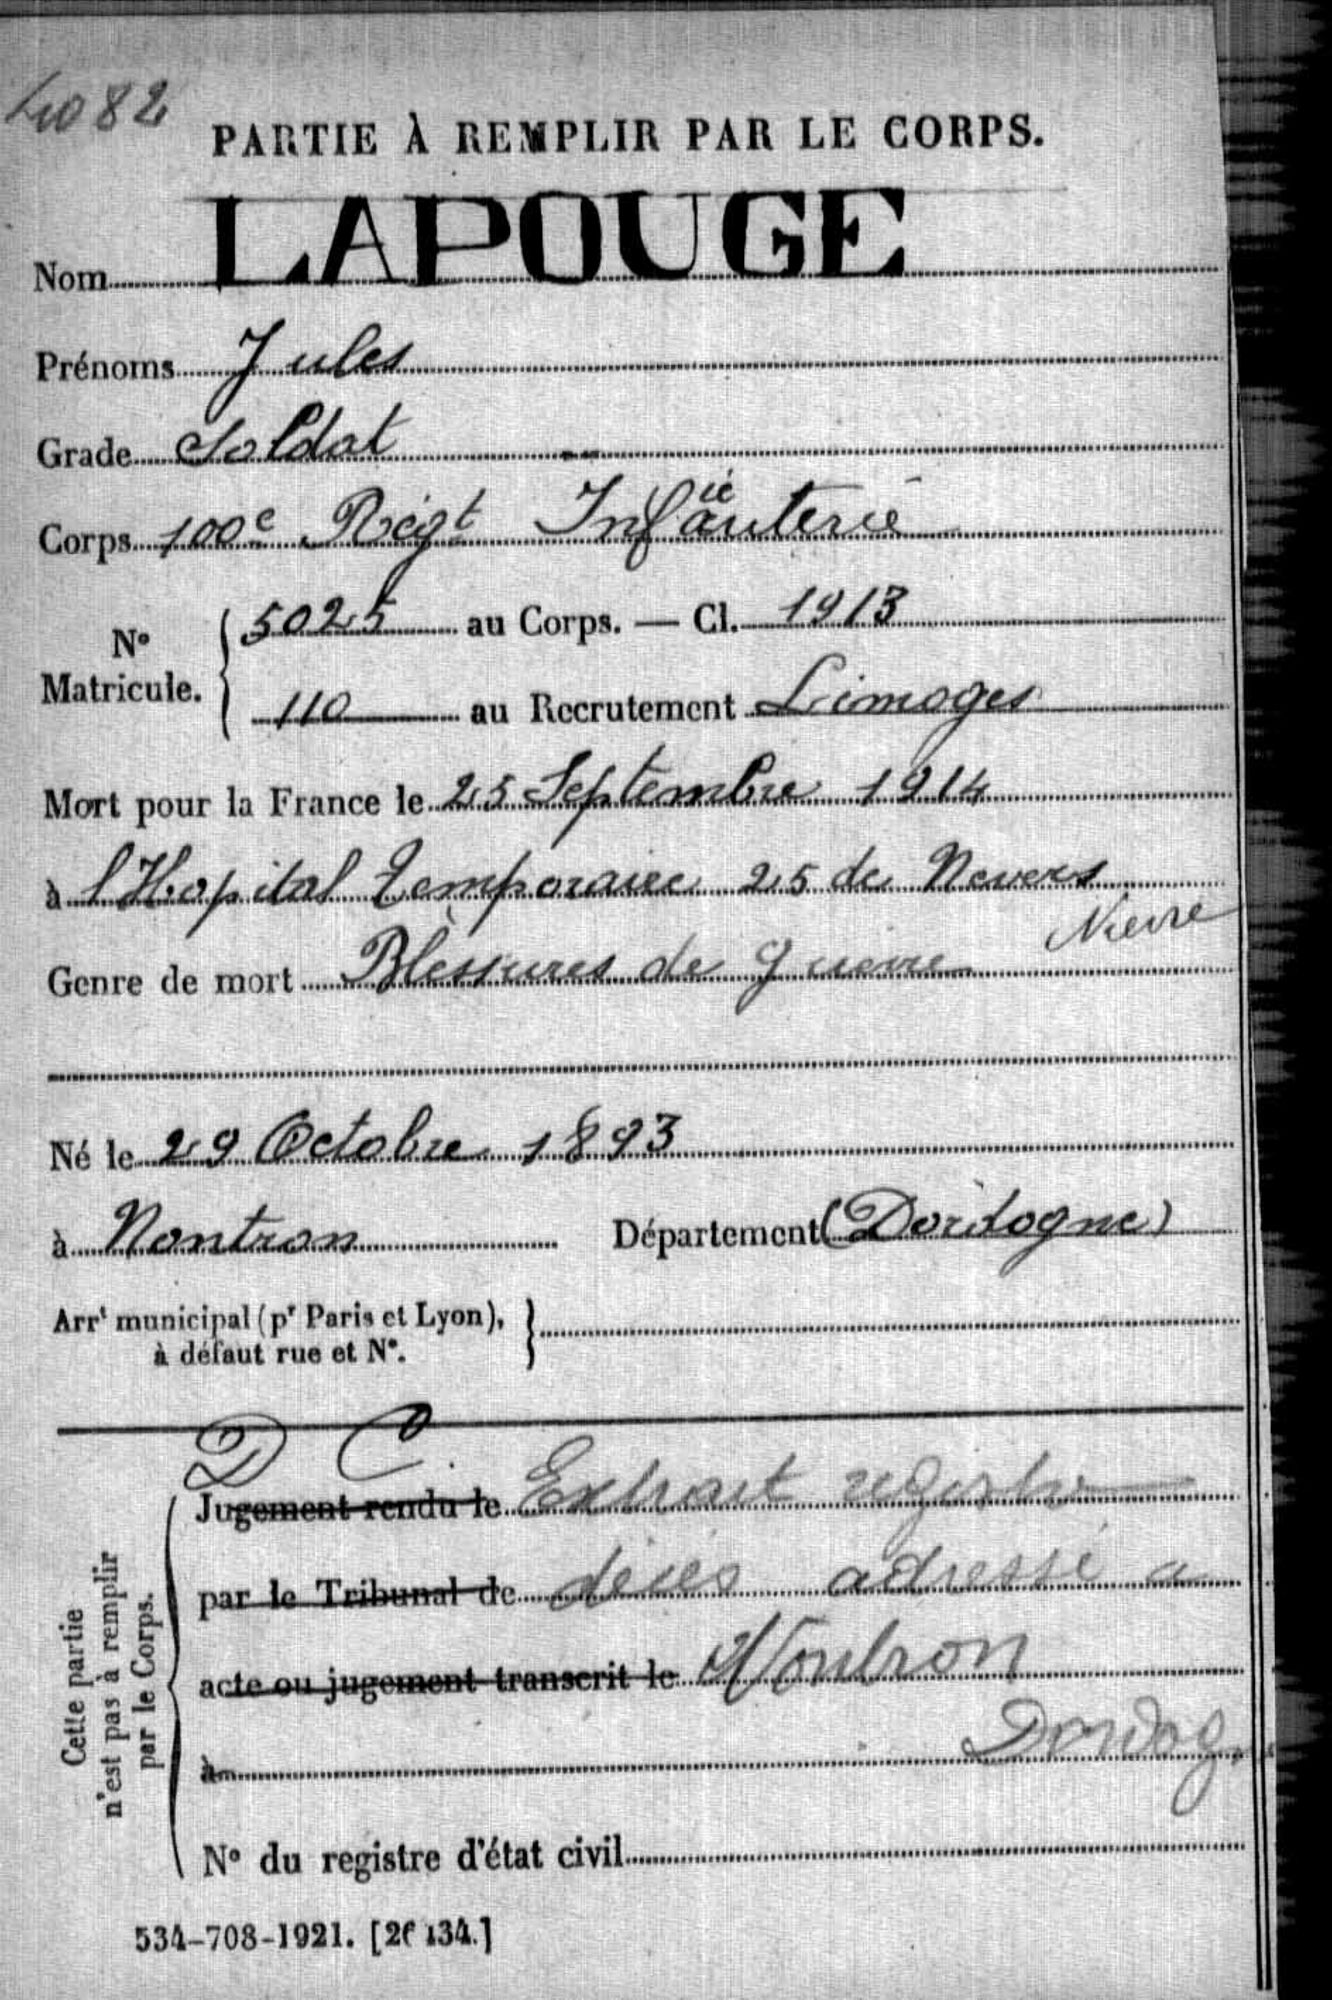 4082
PARTIE À REMPLIR PAR LE CORPS.
Nom LAPOUGE
Prénoms Jules
Grade Soldat
Corps 100e Régt Infanterie
ie
N° Matricule. { 5025 au Corps. — Cl. 1913
110 au Recrutement Limoges
Mort pour la France le 25 Septembre 1914
à l'Hopital Temporaire 25 de Nevers
Nievre
Genre de mort Blèssures de guerre
Né le 29 Octobre 1893
à Nontron Département (Dordogne)
Arrt municipal (pr Paris et Lyon), à défaut rue et N°. }
D C
Jugement rendu le Extrait registre
par le Tribunal de décès adressé a
acte ou jugement transcrit le Nontron
à Dordog.
N° du registre d'état civil
Cette partie
n'est pas à remplir
par le Corps.
534-708-1921. [26134.]